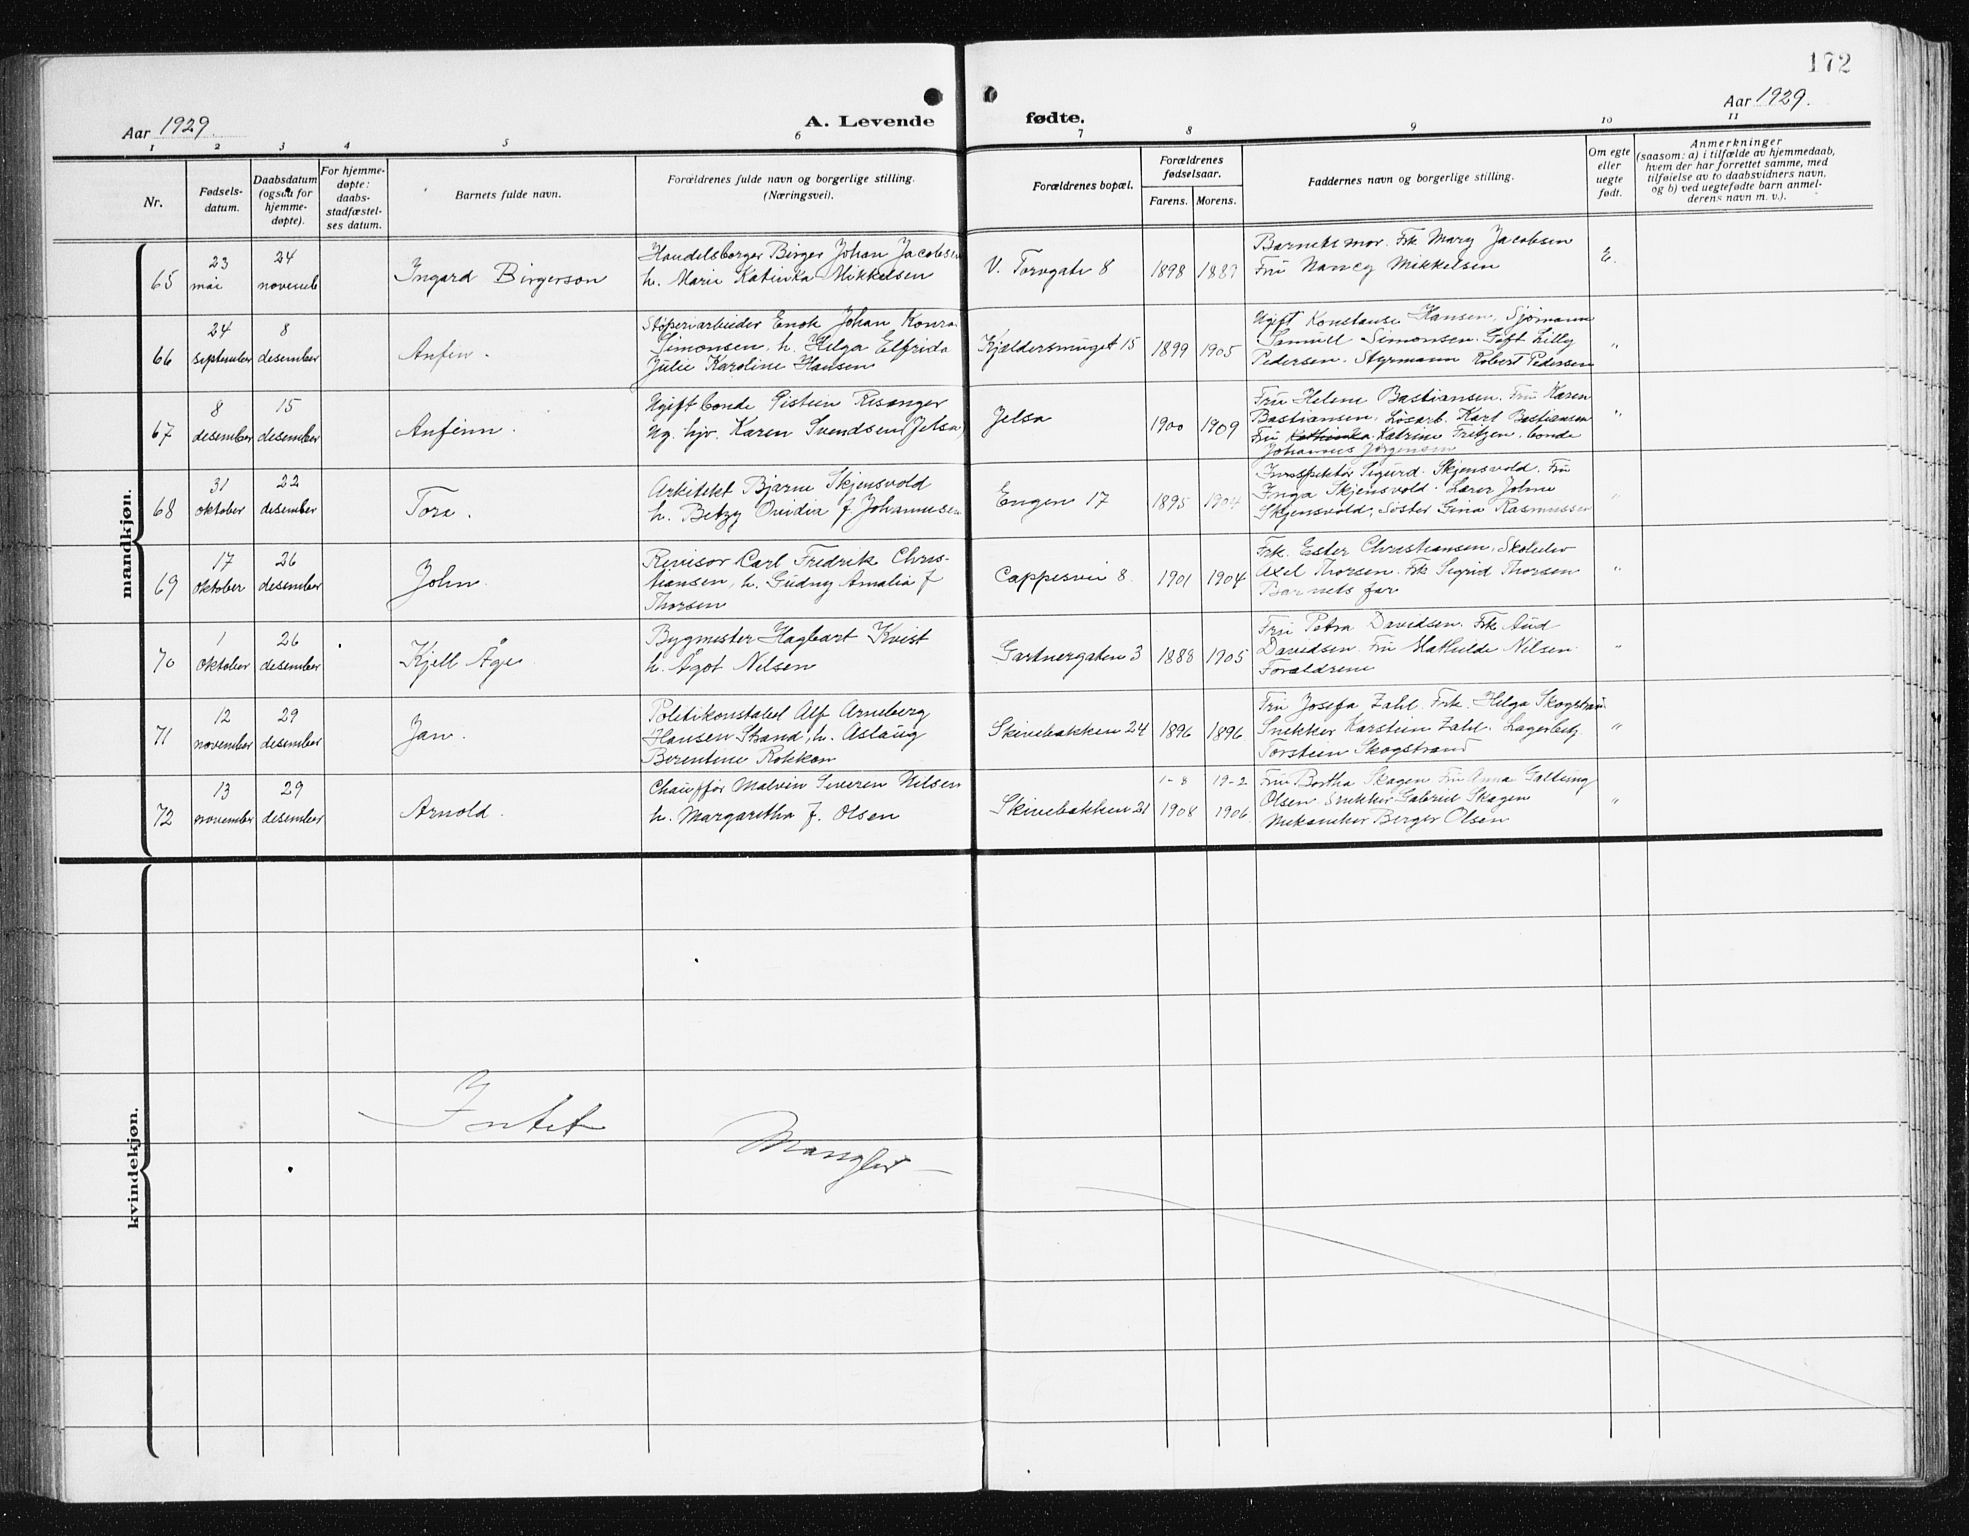 172
Aar 1929.
A. Levende
fødte.
Aar 1929.
1 2 3 4 5 6 7 8 9 10 11
Nr.
Fødsels-
datum.
Daabsdatum
(ogsaa for
hjemme-
døpte).
For hjemme-
døpte:
daabs-
stadfæstel-
ses datum.
Barnets fulde navn.
Forældrenes fulde navn og borgerlige stilling.
(Næringsvei).
Forældrenes bopæl.
Forældrenes
fødselsaar.
Farens. Morens.
Faddernes navn og borgerlige stilling.
Om egte
eller
uegte
født.
Anmerkninger
(saasom: a) i tilfælde av hjemmedaab,
hvem der har forrettet samme, med
tilføielse av to daabsvidners navn,
og b) ved uegtefødte barn anmel-
derens navn m. v.).
mandkjøn.
65
23
mai
24
novemb
Ingard Birgerson
Handelsborger Birger Johan Jacobsen
h. Marie Katinka Mikkelsen
V. Torvgate 8
1898 1889
Barnets mor. Frk Mary Jacobsen
Fru Nancy Mikkelsen
E.
66
24
september
8
desember
Anfin.
Støperiarbeider Enok Johan Konra
Simonsen, h. Helga Elfrida
Julie Karoline Hansen
Kjældersmuget 15
1899 1905
Ugift Konstanse Hansen, Sjømann
Samuel Simonsen. Gift Lilly
Pedersen. Styrmann Robert Pedersen
"
67
8
desember
15
desember
Anfinn.
Ugift bonde Sisteen Risanger
Ug. hjv. Karen Svendsen (Jelsa)
Jelsa
1900 1909
Fru Helene Bastiansen. Fru Karen
Bastiansen, Løsarb. Karl Bastiansen
Fru Kathinka Katrine Fritzen. bonde
Johannes Jørgensen
"
68
31
oktober
22
desember
Tore.
Arkitekt Bjarne Skjensvold
h. Betzy Ovidia f Johannesen
Engen 17
1895 1904
Inspektør Sigurd Skjensvold. Fru
Inga Skjensvold. Lærer Johne
Skjensvold, Søster Gina Rasmussen
"
69
17
oktober
26
desember
John.
Revisor Carl Fredrik Chris-
tiansen, h. Gudny Amalia f
Thorsen
Cappesvei 8.
1901 1904
Frk. Ester Christiansen. Skoleelev
Axel Thorsen. Frk Sigrid Thorsen
Barnets far
"
70
1
oktober
26
desember
Kjell Åge
Bygmester Hagbart Kvist
h. Ågot Nilsen
Gartnergaten 3
1888 1905
Fru Petra Davidsen. Frk Aud
Davidsen. Fru Mathilde Nilsen
Foreldrene
"
71
12
november
29
desember
Jan.
Politikonstabel Alf Arneberg
Hansen Strand, h. Aslaug
Berentine Rokkon
Skivebakken 24
1896 1896
Fru Josefa Zahl. Frk. Helga Skogstran
Snekker Karstein Zahl. Lagerbetj.
Torstein Skogstrand
"
72
13
november
29
desember
Arnold.
Chauffør Malvin Severin Nilsen
h. Margaretha f. Olsen
Skivebakken 21
1-8 19-2
1908 1906
Fru Bertha Skagen Fru Anna Galtung
Olsen Snekker Gabriel Skagen
Mekaniker Berger Olsen
"
kvindekjøn.
Intet
Mangler